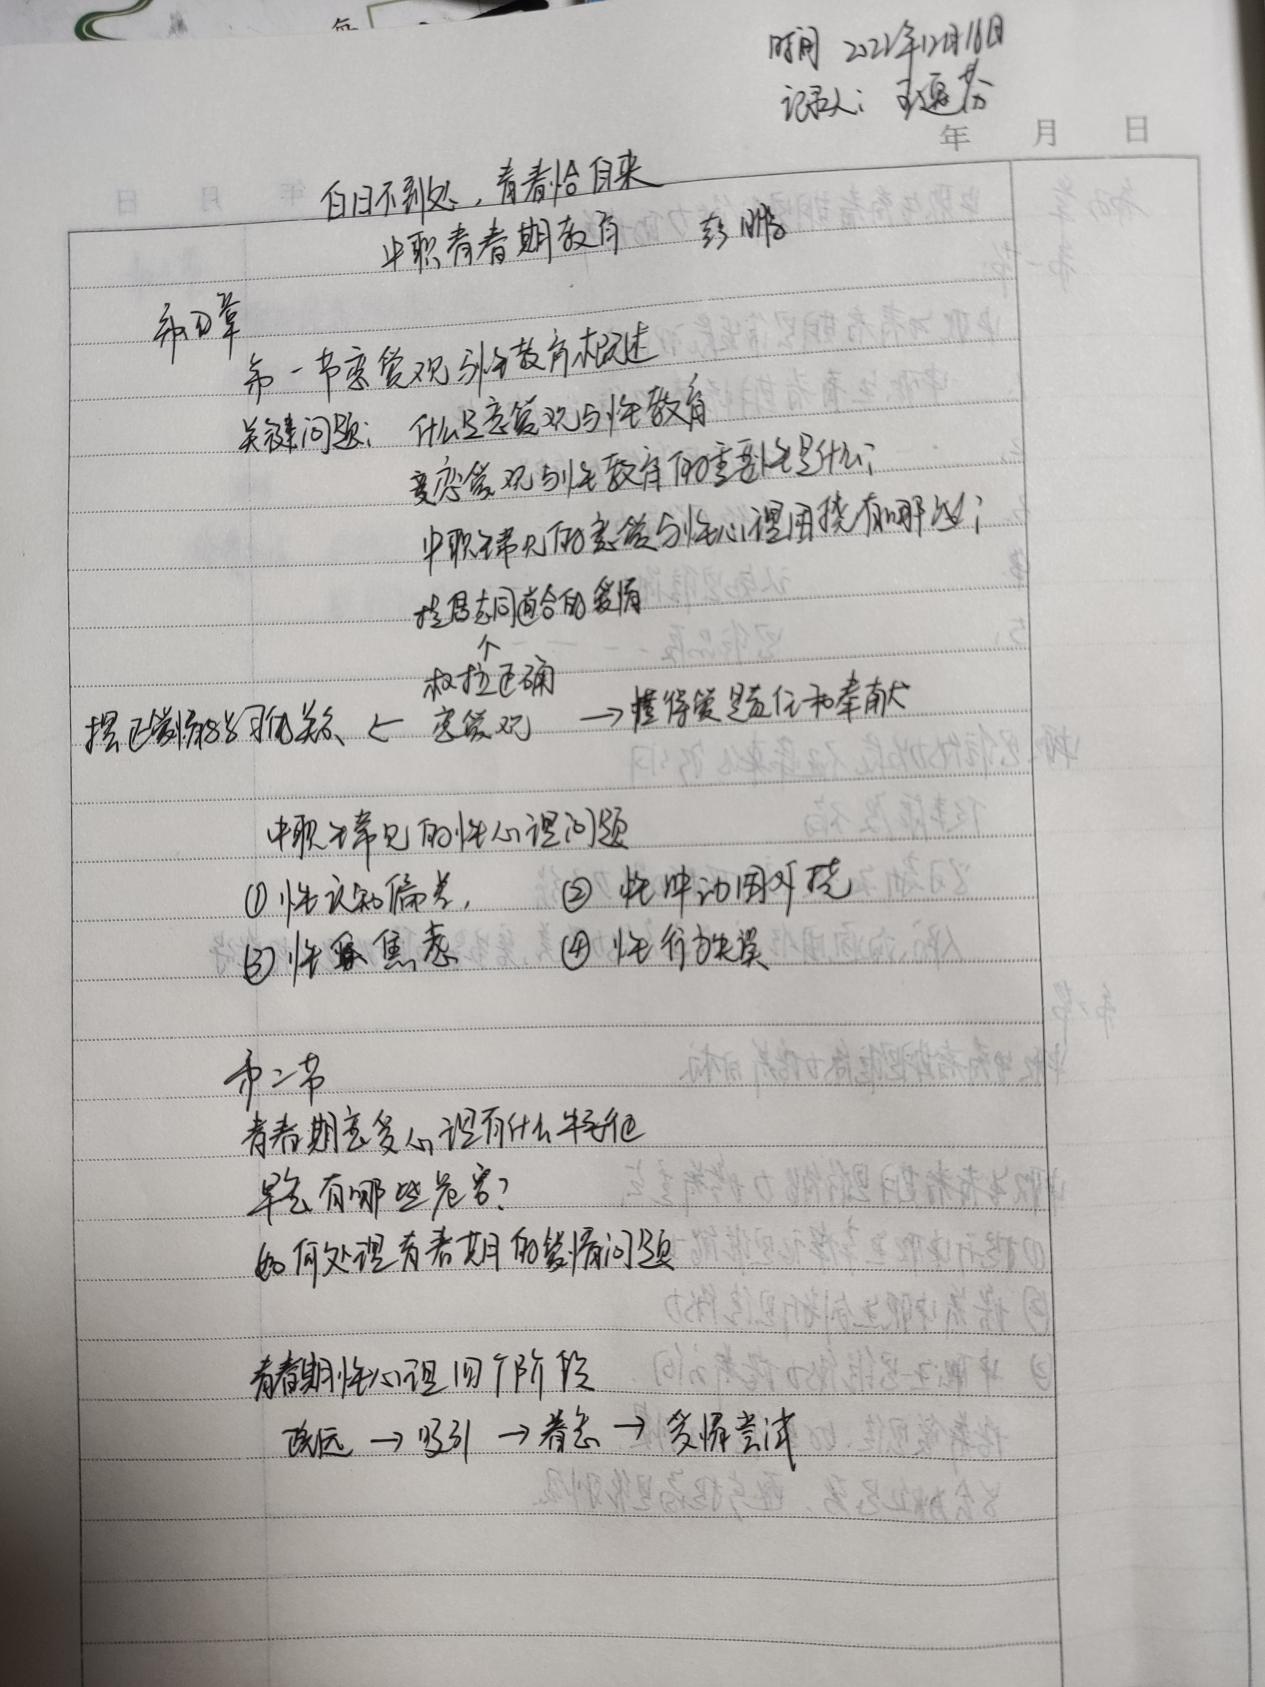 时间 2022年12月16日
记录人：
年 月 日
白日不到处，青春恰自来
中职青春期教育 彭鹏
第四章
第一节恋爱观与性教育概述
关键问题：什么是恋爱观与性教育
恋爱观与性教育的重要性是什么；
中职生常见的恋爱与性心理困扰有哪些；
提倡志同道合的爱情
↑
树立正确
摆正爱情与学习的关系 ← 恋爱观 → 懂得爱是责任和奉献
中职生常见的性心理问题
① 性认知偏差， ② 性冲动困扰
③ 性焦虑 ④ 性行为失误
第二节
青春期恋爱心理有什么特征
早恋有哪些危害？
如何处理青春期的爱情问题
青春期性心理四个阶段
疏远 → 吸引 → 眷恋 → 爱情尝试